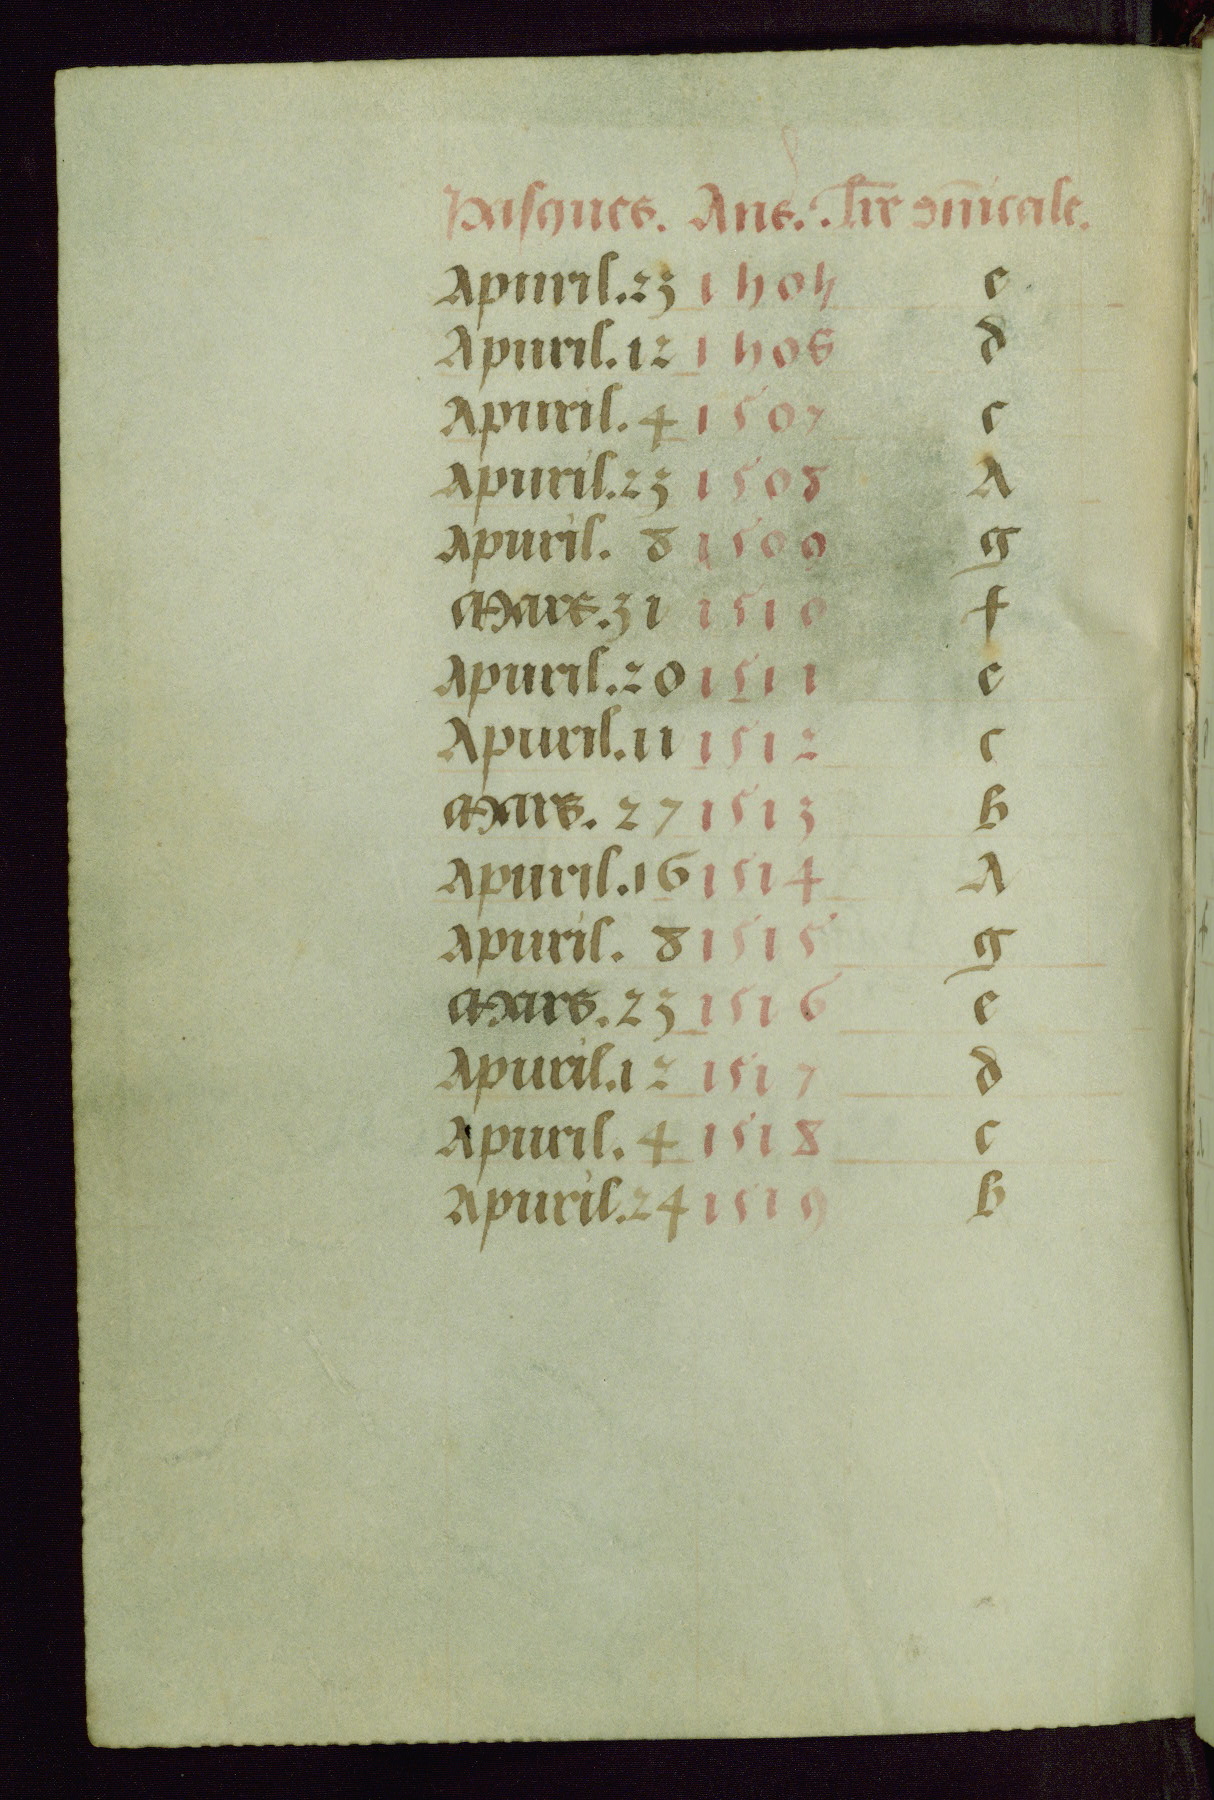 Pasques. Ans. Lr̃e dñicale.
Apuril. 23 1505 e
Apuril. 12 1506 d
Apuril. 4 1507 c
Apuril. 23 1508 A
Apuril. 8 1509 g
Mars. 31 1510 f
Apuril. 20 1511 e
Apuril. 11 1512 c
Mars. 27 1513 b
Apuril. 16 1514 A
Apuril. 8 1515 g
Mars. 23 1516 e
Apuril. 12 1517 d
Apuril. 4 1518 c
Apuril. 24 1519 b